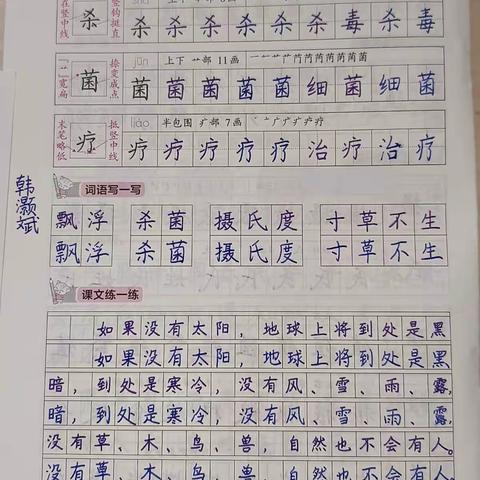 在竖中线
杀
竖钩挺直
杀 杀 杀 杀 杀 毒 杀 毒
“艹”宽扁
菌
捺变成点
jūn 上下 艹部 11画
菌 菌 菌 菌 菌 细 菌 细 菌
末笔略低
疗
抵竖中线
liáo 半包围 疒部 7画
疗 疗 疗 疗 疗 治 疗 治 疗
韩灏斌
词语写一写
飘浮 杀菌 摄氏度 寸草不生
飘浮 杀菌 摄氏度 寸草不生
课文练一练
如果没有太阳，地球上将到处是黑
如果没有太阳，地球上将到处是黑
暗，到处是寒冷，没有风、雪、雨、露，
暗，到处是寒冷，没有风、雪、雨、露，
没有草、木、鸟、兽，自然也不会有人。
没有草、木、鸟、兽，自然也不会有人。